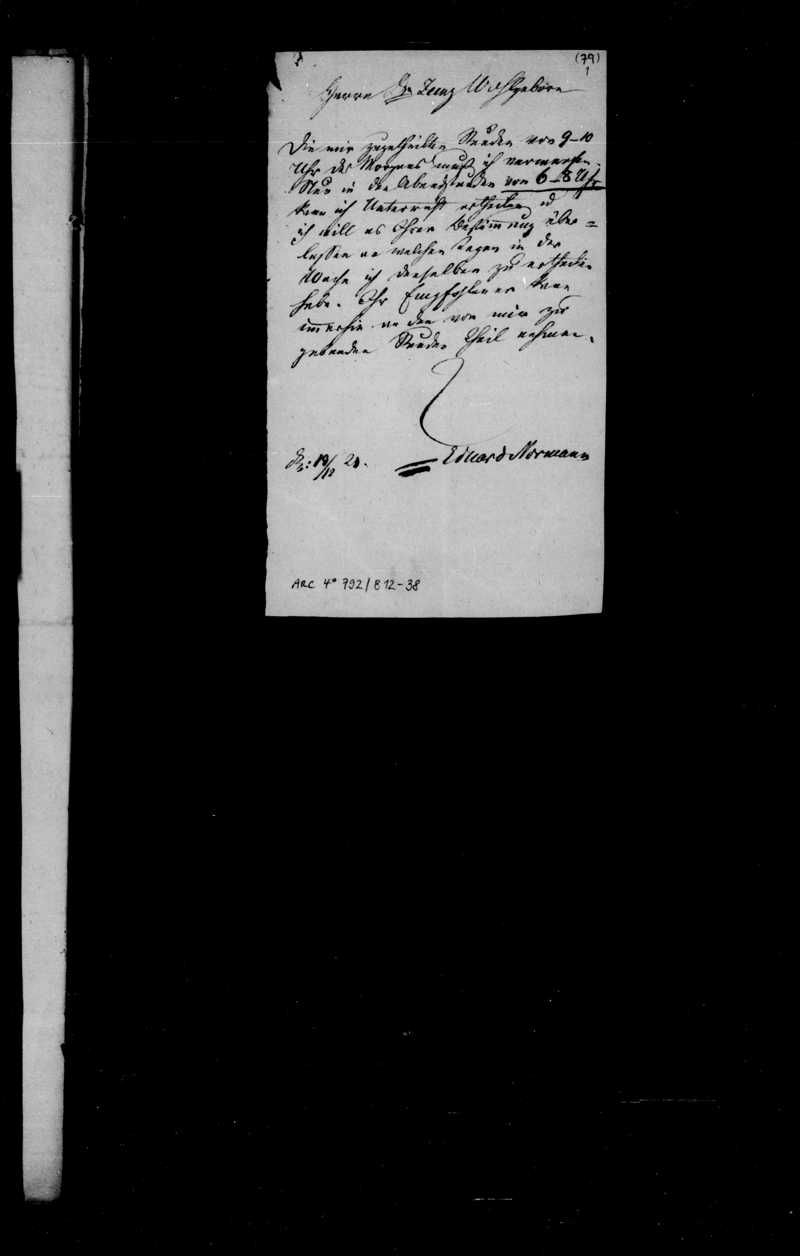 (79)
1
Herrn Dr Zunz Wohlgeboren
Die mir zugetheilten Stunden von 9–10
Uhr des Morgens muß ich verwerfen.
Nur in den Abendstunden von 6–8 Uhr
kann ich Unterricht ertheilen, u
ich will es Ihrer Bestimmung über=
lassen an welchen Tagen in der
Woche ich denselben zu ertheilen
habe. Ihr Empfohlener kann
immerhin an den von mir zu
gebenden Stunden Theil nehmen.
19/12 21.
Eduard Normann
ARC 4° 792/B12-38